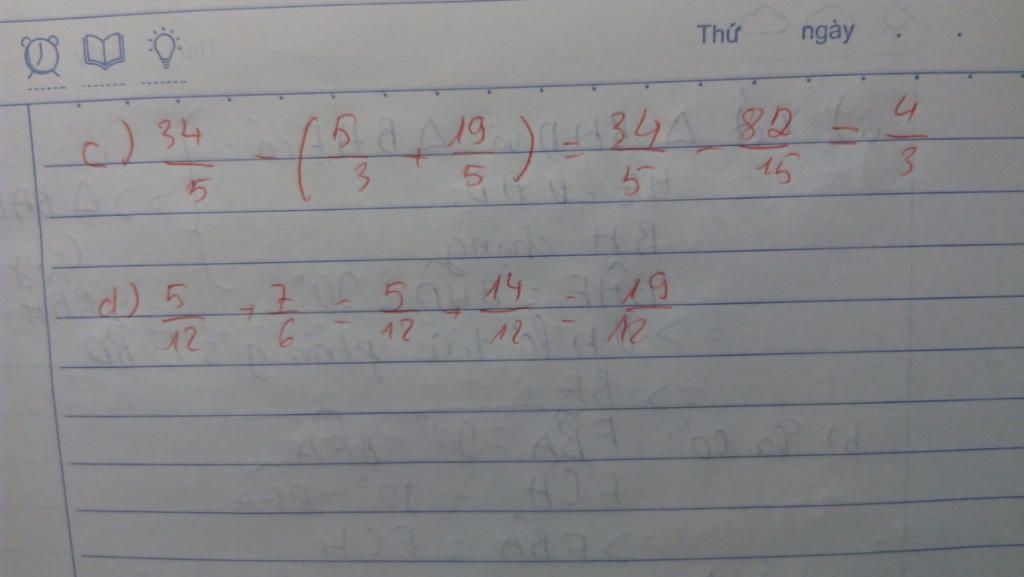 Thứ ngày . .
c) 34/5 - (5/3 + 19/5) = 34/5 - 82/15 = 4/3
d) 5/12 + 7/6 = 5/12 + 14/12 = 19/12